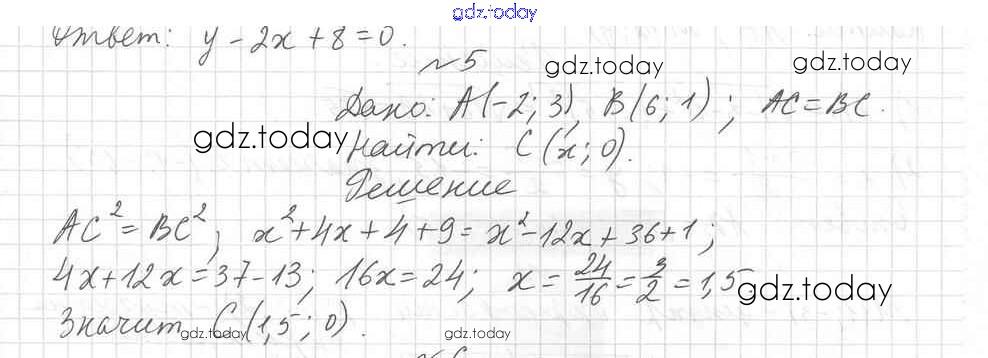 gdz.today
Ответ: y - 2x + 8 = 0.
№5
gdz.today
gdz.today
Дано: A(-2; 3), B(6; 1); AC = BC.
gdz.today
Найти: C(x; 0).
Решение
AC² = BC²; x² + 4x + 4 + 9 = x² - 12x + 36 + 1;
4x + 12x = 37 - 13; 16x = 24; x = 24/16 = 3/2 = 1,5.
gdz.today
Значит, C(1,5; 0).
gdz.today
gdz.today